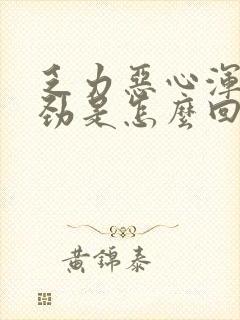 乏力惡心渾
勁是怎麼回
黃錦泰